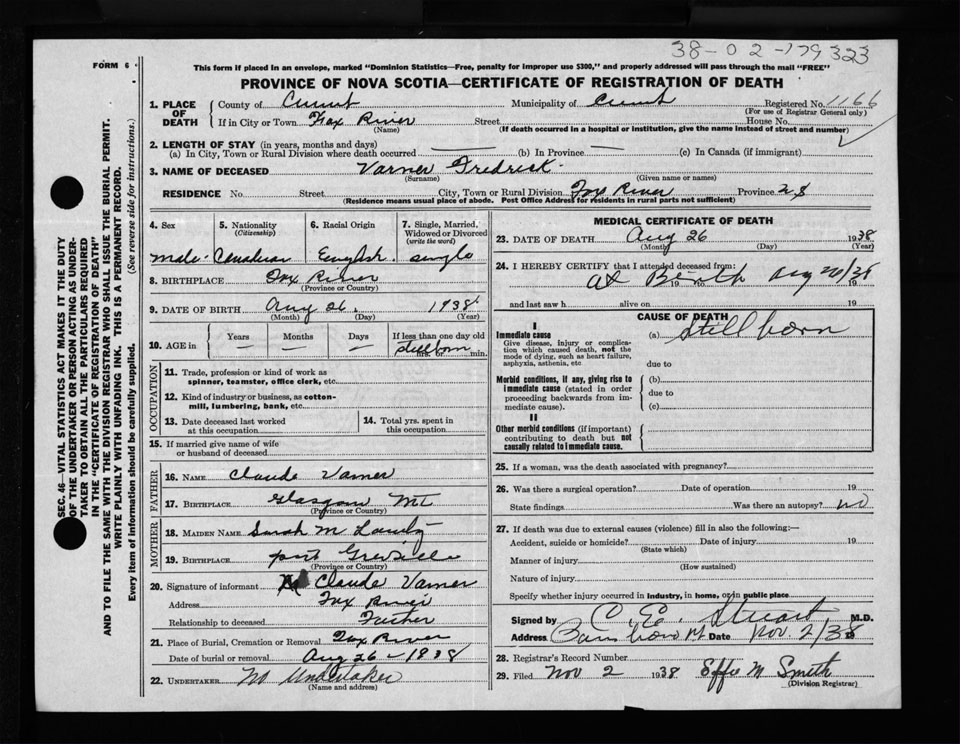 38-02-179323
FORM 6
This form if placed in an envelope, marked "Dominion Statistics—Free, penalty for improper use $300," and properly addressed will pass through the mail "FREE"
PROVINCE OF NOVA SCOTIA—CERTIFICATE OF REGISTRATION OF DEATH
1. PLACE OF DEATH
County of Cumb Municipality of Cumb Registered No. 1166
(For use of Registrar General only)
If in City or Town Fox River Street House No.
(Name) (If death occurred in a hospital or institution, give the name instead of street and number)
2. LENGTH OF STAY (in years, months and days)
(a) In City, Town or Rural Division where death occurred — (b) In Province — (c) In Canada (if immigrant)
3. NAME OF DECEASED Varner Fredrick
(Surname) (Given name or names)
RESIDENCE No. Street City, Town or Rural Division Fox River Province
(Residence means usual place of abode. Post Office Address for residents in rural parts not sufficient)
SEC. 46—VITAL STATISTICS ACT MAKES IT THE DUTY
OF THE UNDERTAKER OR PERSON ACTING AS UNDER-
TAKER TO OBTAIN ALL THE PARTICULARS REQUIRED
IN THE "CERTIFICATE OF REGISTRATION OF DEATH"
AND TO FILE THE SAME WITH THE DIVISION REGISTRAR WHO SHALL ISSUE THE BURIAL PERMIT.
WRITE PLAINLY WITH UNFADING INK. THIS IS A PERMANENT RECORD.
Every item of information should be carefully supplied. (See reverse side for instructions.)
4. Sex 5. Nationality (Citizenship) 6. Racial Origin 7. Single, Married, Widowed or Divorced (write the word)
male Canadian English single
8. BIRTHPLACE Fox River
(Province or Country)
9. DATE OF BIRTH Aug 26 1938
(Month) (Day) (Year)
10. AGE in Years Months Days If less than one day old
— — — stillborn hrs. or min.
OCCUPATION
11. Trade, profession or kind of work as
spinner, teamster, office clerk, etc.
12. Kind of industry or business, as cotton-
mill, lumbering, bank, etc.
13. Date deceased last worked
at this occupation
14. Total yrs. spent in
this occupation
15. If married give name of wife
or husband of deceased
FATHER
16. NAME Claude Varner
17. BIRTHPLACE Glasgow Mt
(Province or Country)
MOTHER
18. MAIDEN NAME Sarah M
19. BIRTHPLACE port Greville
(Province or Country)
20. Signature of informant Claude Varner
Address Fox River
Relationship to deceased Father
21. Place of Burial, Cremation or Removal Fox River
Date of burial or removal Aug 26 - 1938
22. UNDERTAKER No Undertaker
(Name and address)
MEDICAL CERTIFICATE OF DEATH
23. DATE OF DEATH Aug 26 1938
(Month) (Day) (Year)
24. I HEREBY CERTIFY that I attended deceased from:
At Birth 19 to 19
and last saw h alive on 19
CAUSE OF DEATH
I
Immediate cause
Give disease, injury or complica-
tion which caused death, not the
mode of dying, such as heart failure,
asphyxia, asthenia, etc
(a) Stillborn
due to
Morbid conditions, if any, giving rise to
immediate cause (stated in order
proceeding backwards from im-
mediate cause).
(b)
due to
(c)
II
Other morbid conditions (if important)
contributing to death but not
causally related to immediate cause.
25. If a woman, was the death associated with pregnancy?
26. Was there a surgical operation? Date of operation 19
State findings Was there an autopsy? no
27. If death was due to external causes (violence) fill in also the following:—
Accident, suicide or homicide? Date of injury 19
(State which)
Manner of injury
(How sustained)
Nature of injury
Specify whether injury occurred in industry, in home, or in public place
Signed by C. E. Stuart M.D.
Address Parrsboro Date Nov. 2/38
28. Registrar's Record Number
29. Filed Nov 2 1938 Effie M Smith
(Division Registrar)